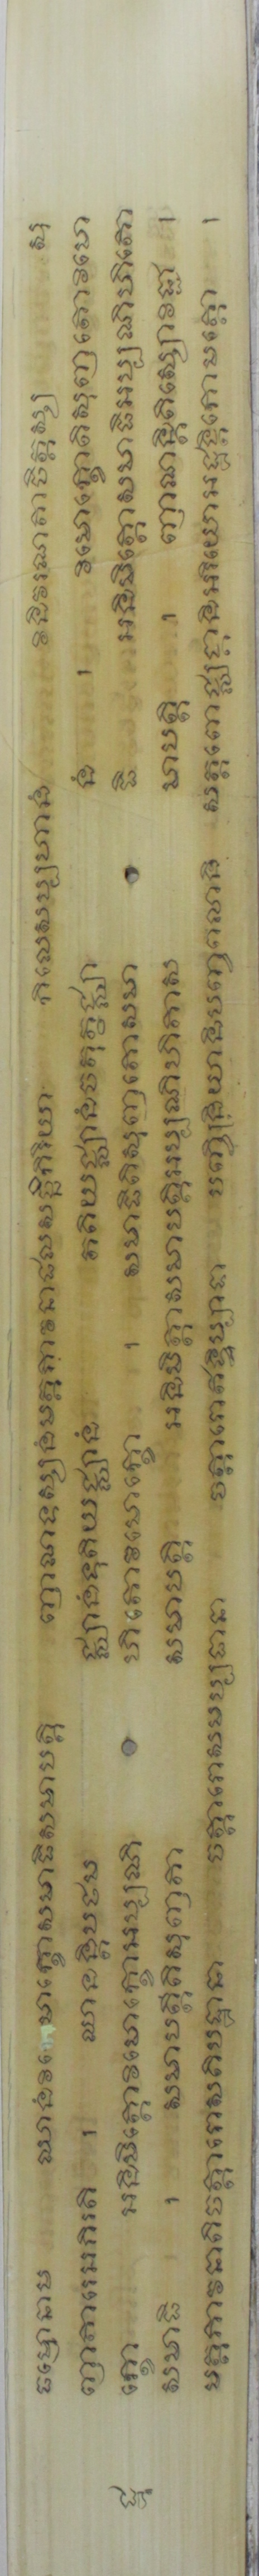 ធម្មោនាម ឈានំវិមោក្ខោសមាធិសមាបត្តិ ញាណទស្សនំមគ្គភាវនាផលសច្ឆិកិរិយា កិលេសប្បហានំ វិនីវរណតាចិត្តស្ស សុ
ញាគារេអភិរតិ ។ ឈានន្តិបឋម ជ្ឈានំទុតិយជ្ឈានំ តតិយជ្ឈានំចតុត្ថជ្ឈា នំ ។ វិមោក្ខោតិសុញតោវិមោ
ក្ខោ អនិមិត្តោវិមោក្ខោអប្បណិ ហិតោវិមោក្ខោ ។ សមាធិតិសុញតោសមា ធិ អនិមិត្តោសមាធិអប្បណិហិតោ
សមាធិ ។ សមាបត្តីតិសុញតា សមាបត្តិ អនិមិត្តាសមាបត្តិអប្បណិហិតាស មាបត្តិ ។ ញាណន្តិតិស្សោវិជ្ជា ។
មគ្គភាវនាតិចត្តារោសតិបដ្ឋានា ចត្តារោសមប្បធានា ចត្តារោឥទ្ធិប្បាទា បញ្ចិន្ទ្រិយានិបញ្ចពលានិ សត្តពោជ្ឈង្គានិអរិយោអដ្ឋង្គិកោមគ្គោ ។